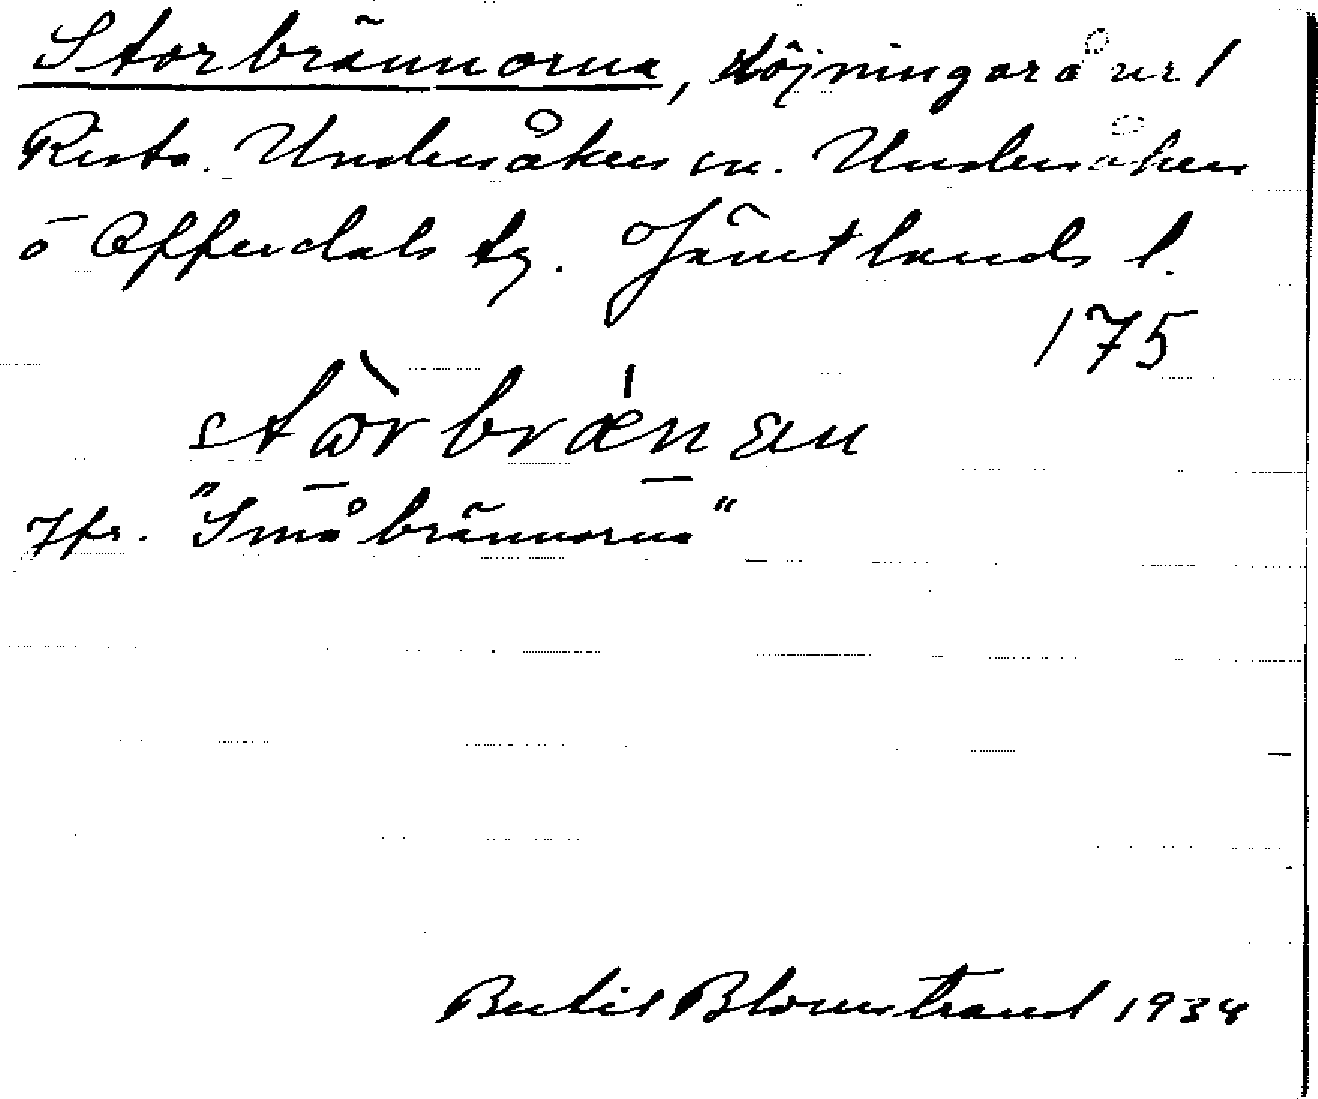 Storbrännorna, Röjningar å nr 1
Rista. Undersåkers sn. Undersåkers
o Offerdals tg. Jämtlands l.
175
stòrbrǽnɐn
Jfr. "Småbrännorna"
Bertil Blomstrand 1934